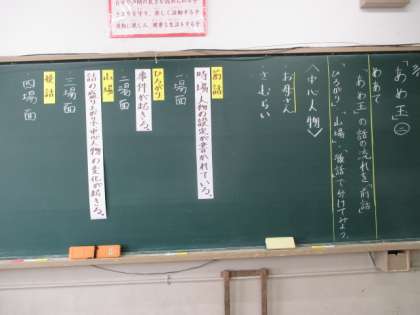 「あめ玉」②
めあて
「あめ玉」の話の流れを「前話」
「ひろがり」「山場」「後話」で分けてみよう。
〈中心人物〉
・お母さん
・さむらい
前話
時、場、人物の設定が書かれている。
一場面
ひろがり
事件が起きる。
二場面
山場
話の盛り上がり。中心人物の変化が起きる。
三場面
後話
四場面